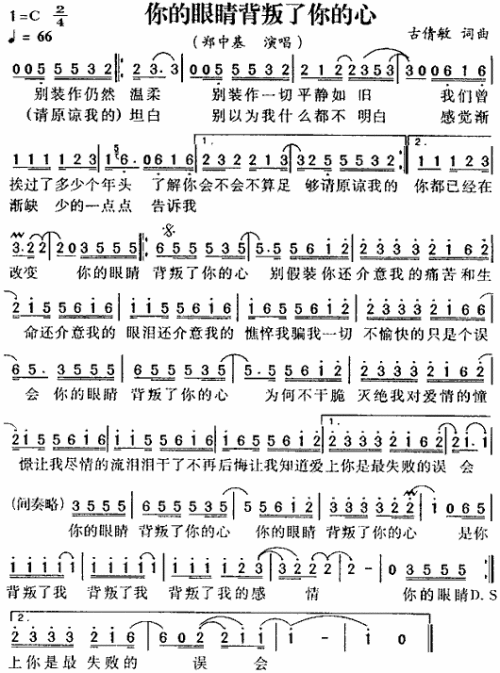 你的眼睛背叛了你的心
1=C 2/4
♩=66
(郑中基 演唱)
古倩敏 词曲
005 5532 | 2 3. 3 | 005 5532 | 212 2353 | 300616 |
别装作仍然 温柔 别装作一切平静如 旧 我们曾
(请原谅我的)坦白 别以为我什么都不 明白 感觉渐
111 123 | 16. 0616 | 1. 232 2123 | 325 5532 :| 2. 112 123 |
挨过了多少个年头 了解你会不会不算足 够请原谅我的 你都已经在
渐缺 少的一点点 告诉我
3. 22 | 203555 |: 655535 | 5.5 5612 | 2333212 |
改变 你的眼睛 背叛了你的心 别假装你还介意我的痛苦和生
2155616 | 1155616 | 1155612 | 2333212 |
命还介意我的 眼泪还介意我的 憔悴我骗我一切 不愉快的只是个误
65. 3555 | 655535 | 5.5 5612 | 2333212 |
会 你的眼睛 背叛了你的心 为何不干脆 灭绝我对爱情的憧
2155616 | 1155616 | 1155612 | 1. 2333212 | 21. 1 |
憬让我尽情的流泪泪干了不再后悔让我知道爱上你是最失败的误 会
(间奏略) 3555 | 655535 | 5.5 5612 | 233322 | 1065 |
你的眼睛 背叛了你的心 你的眼睛 背叛了你的心 是你
11111 | 11111 | 1111123 | 3222 | 2 - | 03555 |
背叛了我 背叛了我 背叛了我的感 情 你的眼睛D.S
2. 2333 216 | 1602 2161 | 1 - | 1 0 ‖
上你是最 失败的 误 会